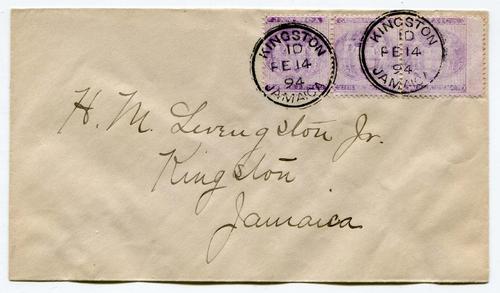 KINGSTON
1D
FE 14
94
JAMAICA
KINGSTON
1D
FE 14
94
JAMAICA
H. M. Livingston Jr.
Kingston
Jamaica